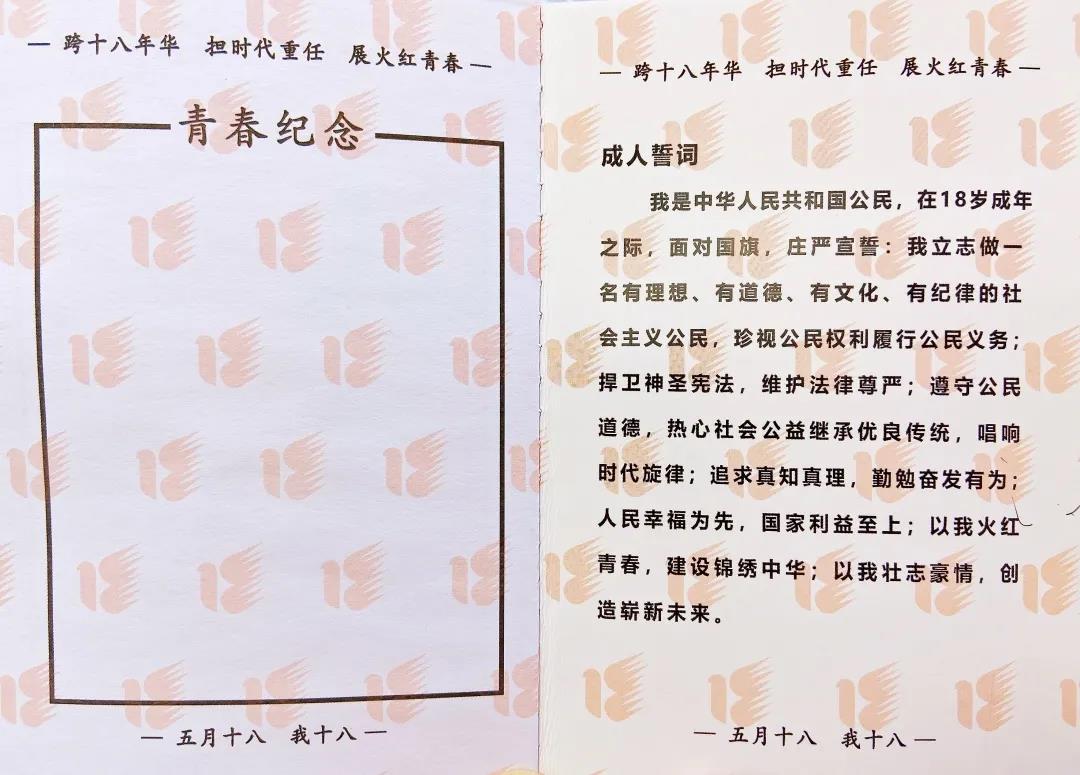 — 跨十八年华 担时代重任 展火红青春 —
青春纪念
— 五月十八 我十八 —
— 跨十八年华 担时代重任 展火红青春 —
成人誓词
我是中华人民共和国公民，在18岁成年
之际，面对国旗，庄严宣誓：我立志做一
名有理想、有道德、有文化、有纪律的社
会主义公民，珍视公民权利履行公民义务；
捍卫神圣宪法，维护法律尊严；遵守公民
道德，热心社会公益继承优良传统，唱响
时代旋律；追求真知真理，勤勉奋发有为；
人民幸福为先，国家利益至上；以我火红
青春，建设锦绣中华；以我壮志豪情，创
造崭新未来。
— 五月十八 我十八 —